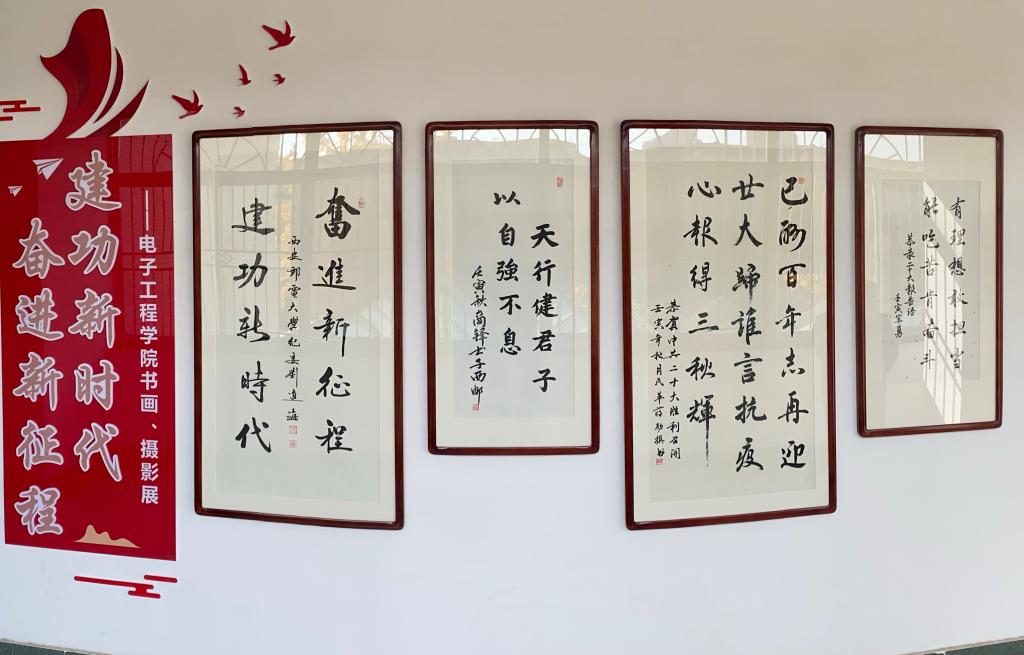 建功新时代
奋进新征程
——电子工程学院书画、摄影展
奮進新征程
建功新時代
西安郵電大學纪委劉海
天行健君子
以自強不息
壬寅秋商锋书于西邮
已酬百年志再迎
廿大歸誰言抗疫
心報得三秋輝
恭賀中共二十大胜利召開
壬寅年秋月民革蒋撰书
有理想敢担当
能吃苦肯奋斗
恭录二十大報告语
壬寅军勇